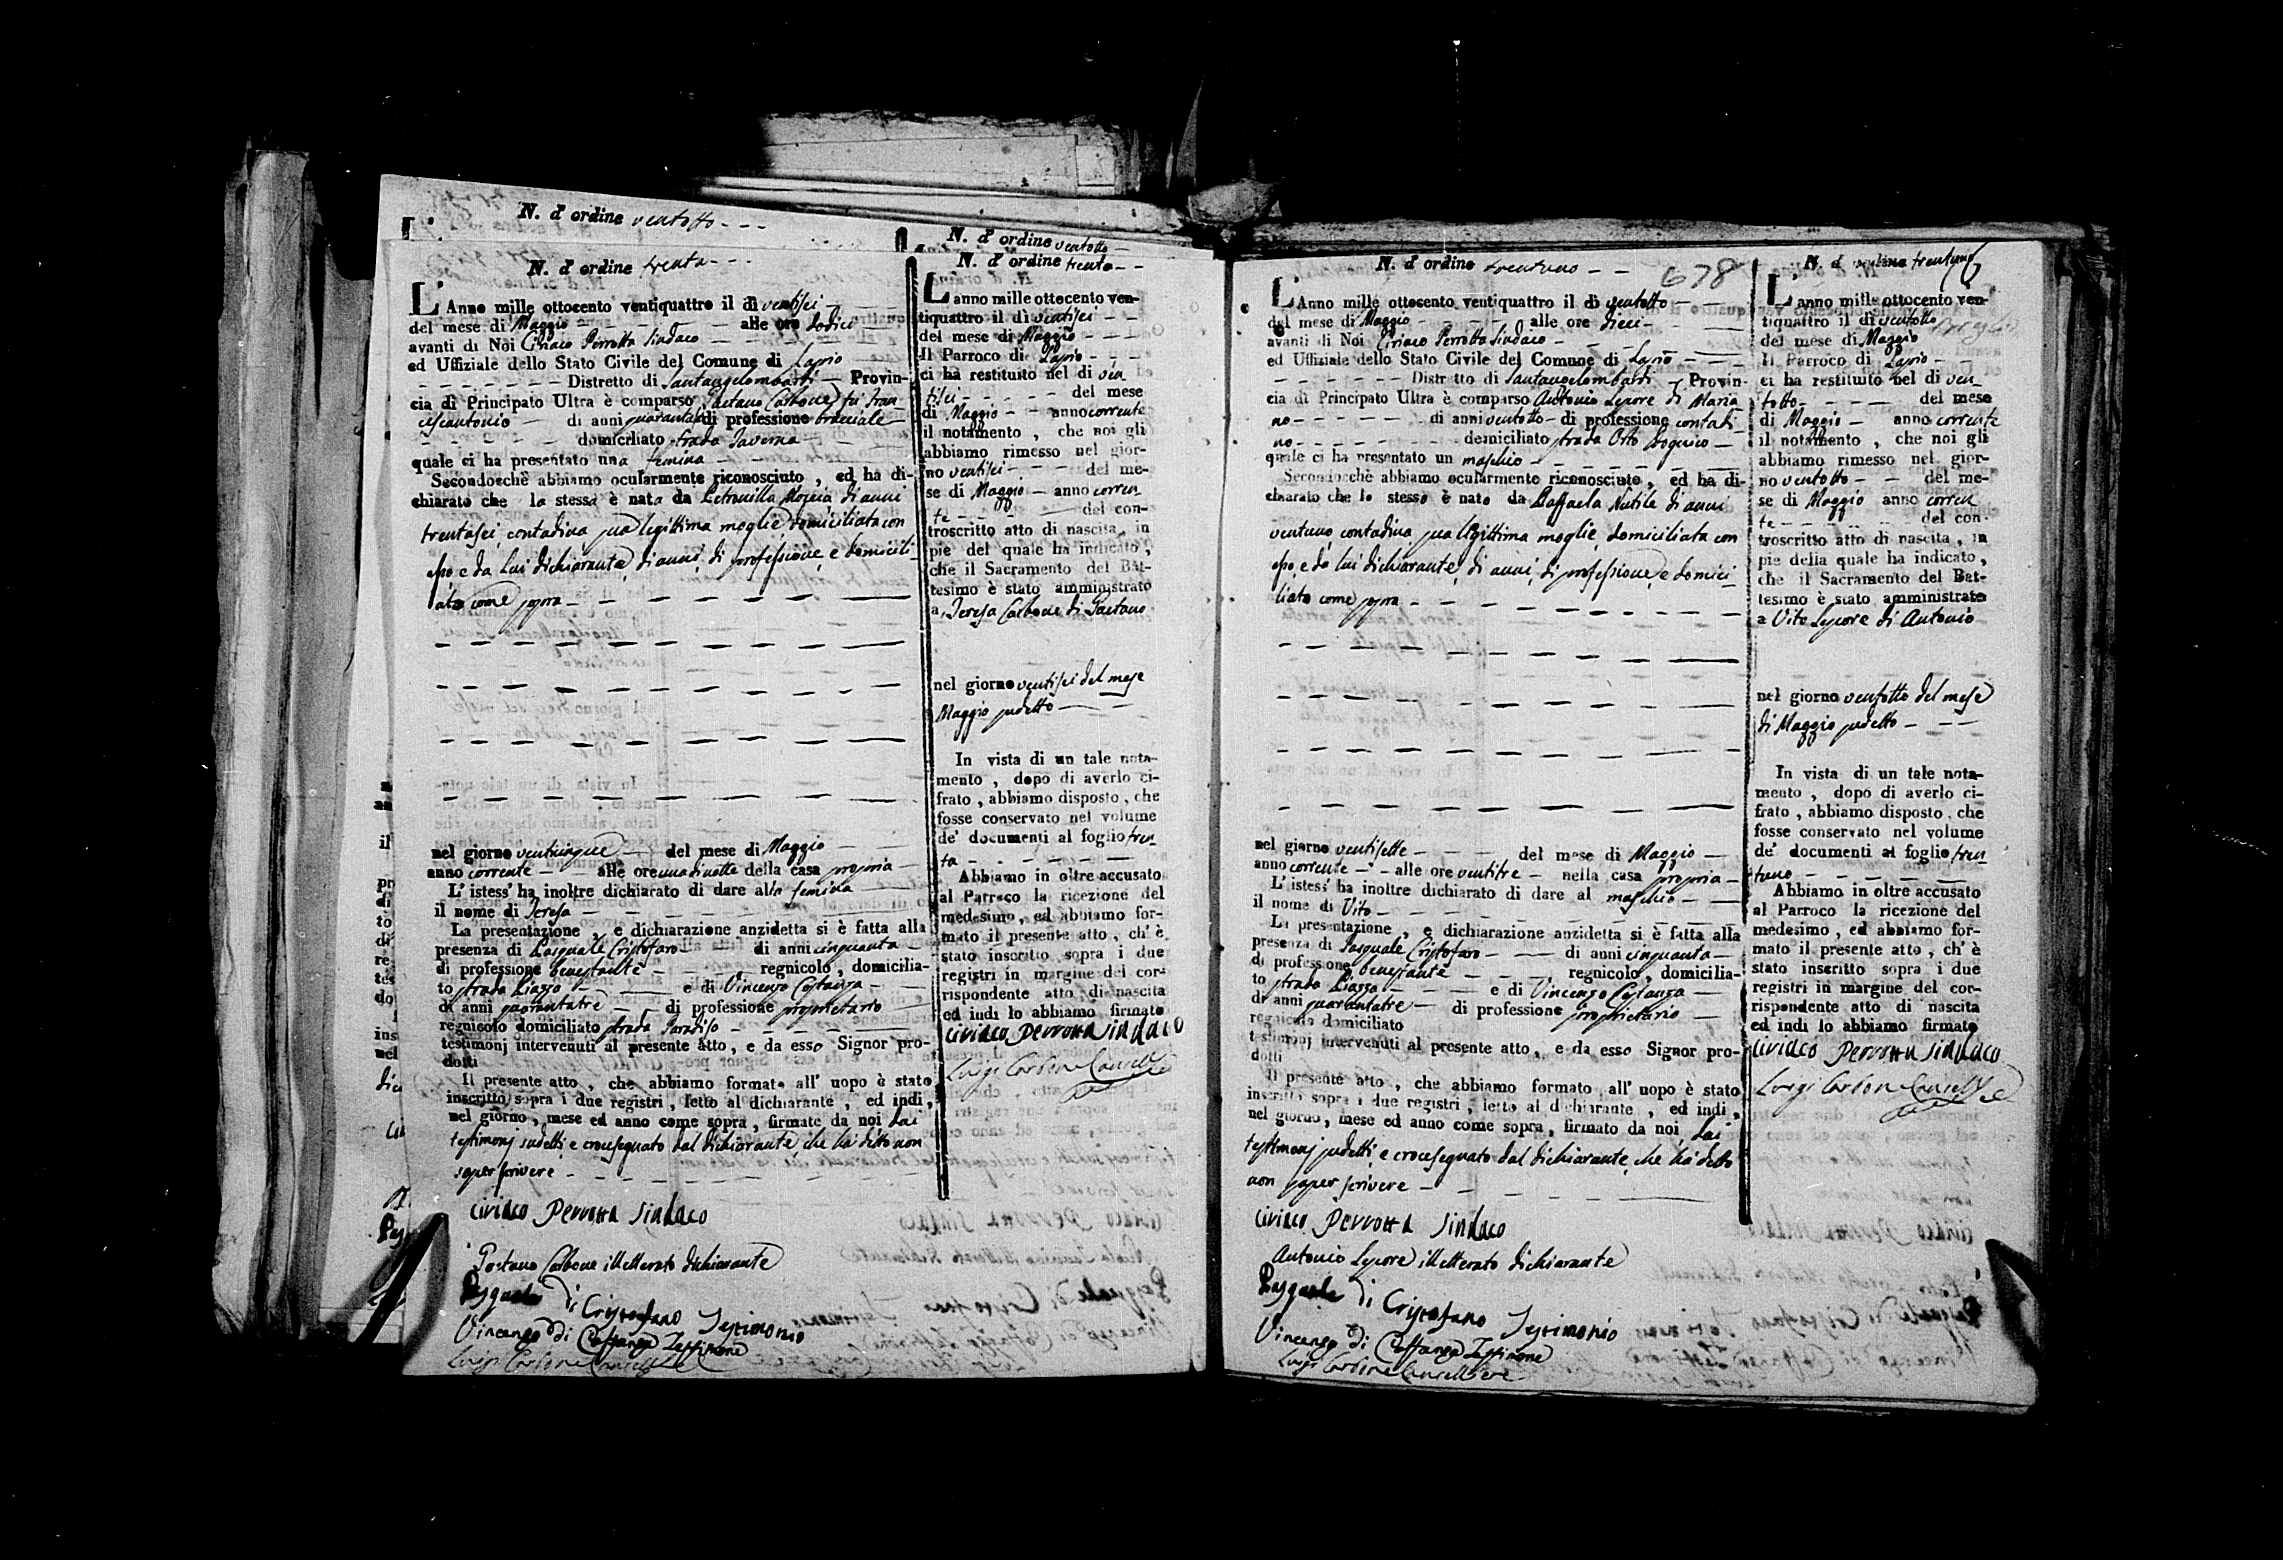 N. d' ordine ventotto
N. d' ordine ventotto
N. d' ordine trenta
L' Anno mille ottocento ventiquattro il dì ventisei
del mese di Maggio alle ore dodici
avanti di Noi Ciriaco Perrotta Sindaco
ed Uffiziale dello Stato Civile del Comune di Lapio
Distretto di Santangelombardi Provin-
cia di Principato Ultra è comparso Gaetano Carbone fu Fran
cescantonio di anni quaranta di professione bracciale
domiciliato strada Taverna
quale ci ha presentato una femina
Secondocchè abbiamo ocularmente riconosciuto, ed ha di-
chiarato che la stessa è nata da Petronilla di anni
trentasei, contadina sua legittima moglie domiciliata con
esso, e da lui dichiarante, di anni, di professione, e domicili-
ato come sopra
nel giorno venticinque del mese di Maggio
anno corrente alle ore una di notte della casa propria
L' istess' ha inoltre dichiarato di dare alla femina
il nome di Teresa
La presentazione, e dichiarazione anzidetta si è fatta alla
presenza di Pasquale Cristofaro di anni cinquanta
di professione benestante regnicolo, domicilia-
to strada Piazza e di Vincenzo Costanza
di anni quarantatre di professione proprietario
regnicolo domiciliato strada Paradiso
testimonj intervenuti al presente atto, e da esso Signor pro-
dotti
Il presente atto, che abbiamo formato all' uopo è stato
inscritto sopra i due registri, letto al dichiarante, ed indi,
nel giorno, mese ed anno come sopra, firmato da noi dai
testimonj sudetti, e crocesegnato dal dichiarante, che ha ditto non
saper scrivere
Ciriaco Perrotta Sindaco
Gaetano Carbone illetterato dichiarante
Pasquale di Cristofano Testimonio
Vincenzo di Costanza Testimone
Luigi Carbone Cancelliere
N. d' ordine trenta
L' anno mille ottocento ven-
tiquattro il dì ventisei
del mese di Maggio
Il Parroco di Lapio
ci ha restituito nel di ven
tisei del mese
di Maggio anno corrente
il notamento, che noi gli
abbiamo rimesso nel gior-
no ventisei del me-
se di Maggio anno corren
te del con-
troscritto atto di nascita, in
pie del quale ha indicato,
che il Sacramento del Bat-
tesimo è stato amministrato
a Teresa Carbone di Gaetano
nel giorno ventisei del mese
Maggio sudetto
In vista di un tale nota-
mento, dopo di averlo ci-
frato, abbiamo disposto, che
fosse conservato nel volume
de' documenti al foglio tren-
ta
Abbiamo in oltre accusato
al Parroco la ricezione del
medesimo, ed abbiamo for-
mato il presente atto, ch' è
stato inscritto sopra i due
registri in margine del cor-
rispondente atto di nascita
ed indi lo abbiamo firmato
Ciriaco Perrotta Sindaco
Luigi Carbone Cancelliere
N. d' ordine trentuno
678
L' Anno mille ottocento ventiquattro il dì ventotto
del mese di Maggio alle ore dieci
avanti di Noi Ciriaco Perrotta Sindaco
ed Uffiziale dello Stato Civile del Comune di Lapio
Distretto di Santangelombardi Provin-
cia di Principato Ultra è comparso Antonio Lepore di Maria
no di anni ventotto di professione contadi
no domiciliato strada Orto
quale ci ha presentato un maschio
Secondocchè abbiamo ocularmente riconosciuto, ed ha di-
chiarato che lo stesso è nato da Raffaela Nutile di anni
ventuno, contadina sua legittima moglie, domiciliata con
esso, e da lui dichiarante, di anni, di professione, e domici
liato come sopra
nel giorno ventisette del mese di Maggio
anno corrente alle ore ventitre nella casa propria
L' istess' ha inoltre dichiarato di dare al maschio
il nome di Vito
La presentazione, e dichiarazione anzidetta si è fatta alla
presenza di Pasquale Cristofaro di anni cinquanta
di professione benestante regnicolo, domicilia-
to strada Piazza e di Vincenzo Costanza
di anni quarantatre di professione proprietario
regnicolo domiciliato
testimonj intervenuti al presente atto, e da esso Signor pro-
dotti
Il presente atto, che abbiamo formato all' uopo è stato
inscritto sopra i due registri, letto al dichiarante, ed indi,
nel giorno, mese ed anno come sopra, firmato da noi, dai
testimonj sudetti, e crocesegnato dal dichiarante, che ha detto
non saper scrivere
Ciriaco Perrotta Sindaco
Antonio Lepore illetterato dichiarante
Pasquale di Cristofano Testimonio
Vincenzo di Costanza Testimone
Luigi Carbone Cancelliere
N. d' ordine trentuno
L' anno mille ottocento ven-
tiquattro il dì ventotto
del mese di Maggio
Il Parroco di Lapio
ci ha restituito nel di ven
totto del mese
di Maggio anno corrente
il notamento, che noi gli
abbiamo rimesso nel gior-
no ventotto del me-
se di Maggio anno corren
te del con-
troscritto atto di nascita, in
pie della quale ha indicato,
che il Sacramento del Bat-
tesimo è stato amministrato
a Vito Lepore di Antonio
nel giorno ventotto del mese
di Maggio sudetto
In vista di un tale nota-
mento, dopo di averlo ci-
frato, abbiamo disposto, che
fosse conservato nel volume
de' documenti al foglio tren
tuno
Abbiamo in oltre accusato
al Parroco la ricezione del
medesimo, ed abbiamo for-
mato il presente atto, ch' è
stato inscritto sopra i due
registri in margine del cor-
rispondente atto di nascita
ed indi lo abbiamo firmato
Ciriaco Perrotta Sindaco
Luigi Carbone Cancelliere